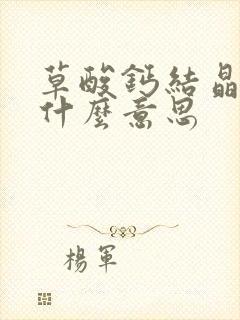 草酸鈣結晶
什麼意思
楊軍